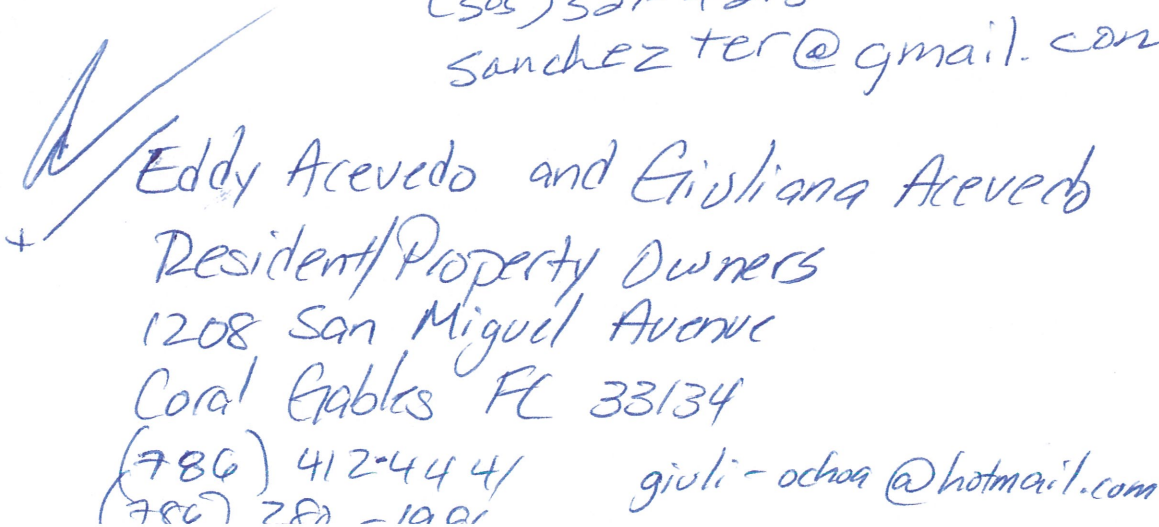 sanchezter@gmail.com
Eddy Acevedo and Giuliana Acevedo
Resident/Property Owners
1208 San Miguel Avenue
Coral Gables FL 33134
(786) 412-4441 giuli-ochoa@hotmail.com
(786)